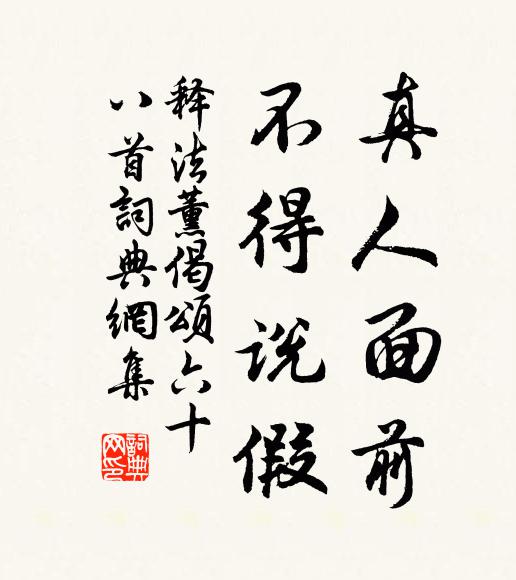 真人面前
不得说假
释法薰偈頌六十
八首詞典網集
詞典
网印